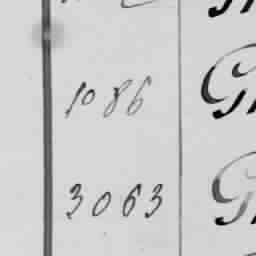 1086 G
3063 G